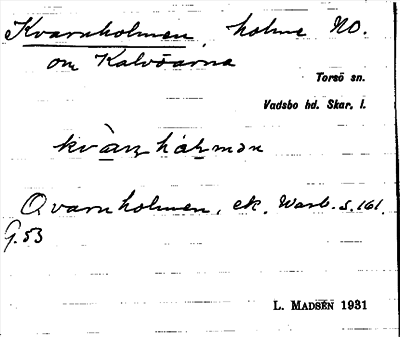 Kvarnholmen, holme NO.
om Kalvöarna
Torsö sn.
Vadsbo hd. Skar. l.
kvàɳ hɑɭmən
Qvarnholmen, ek. Warb. s. 161.
G. 53
L. MADSÉN 1931